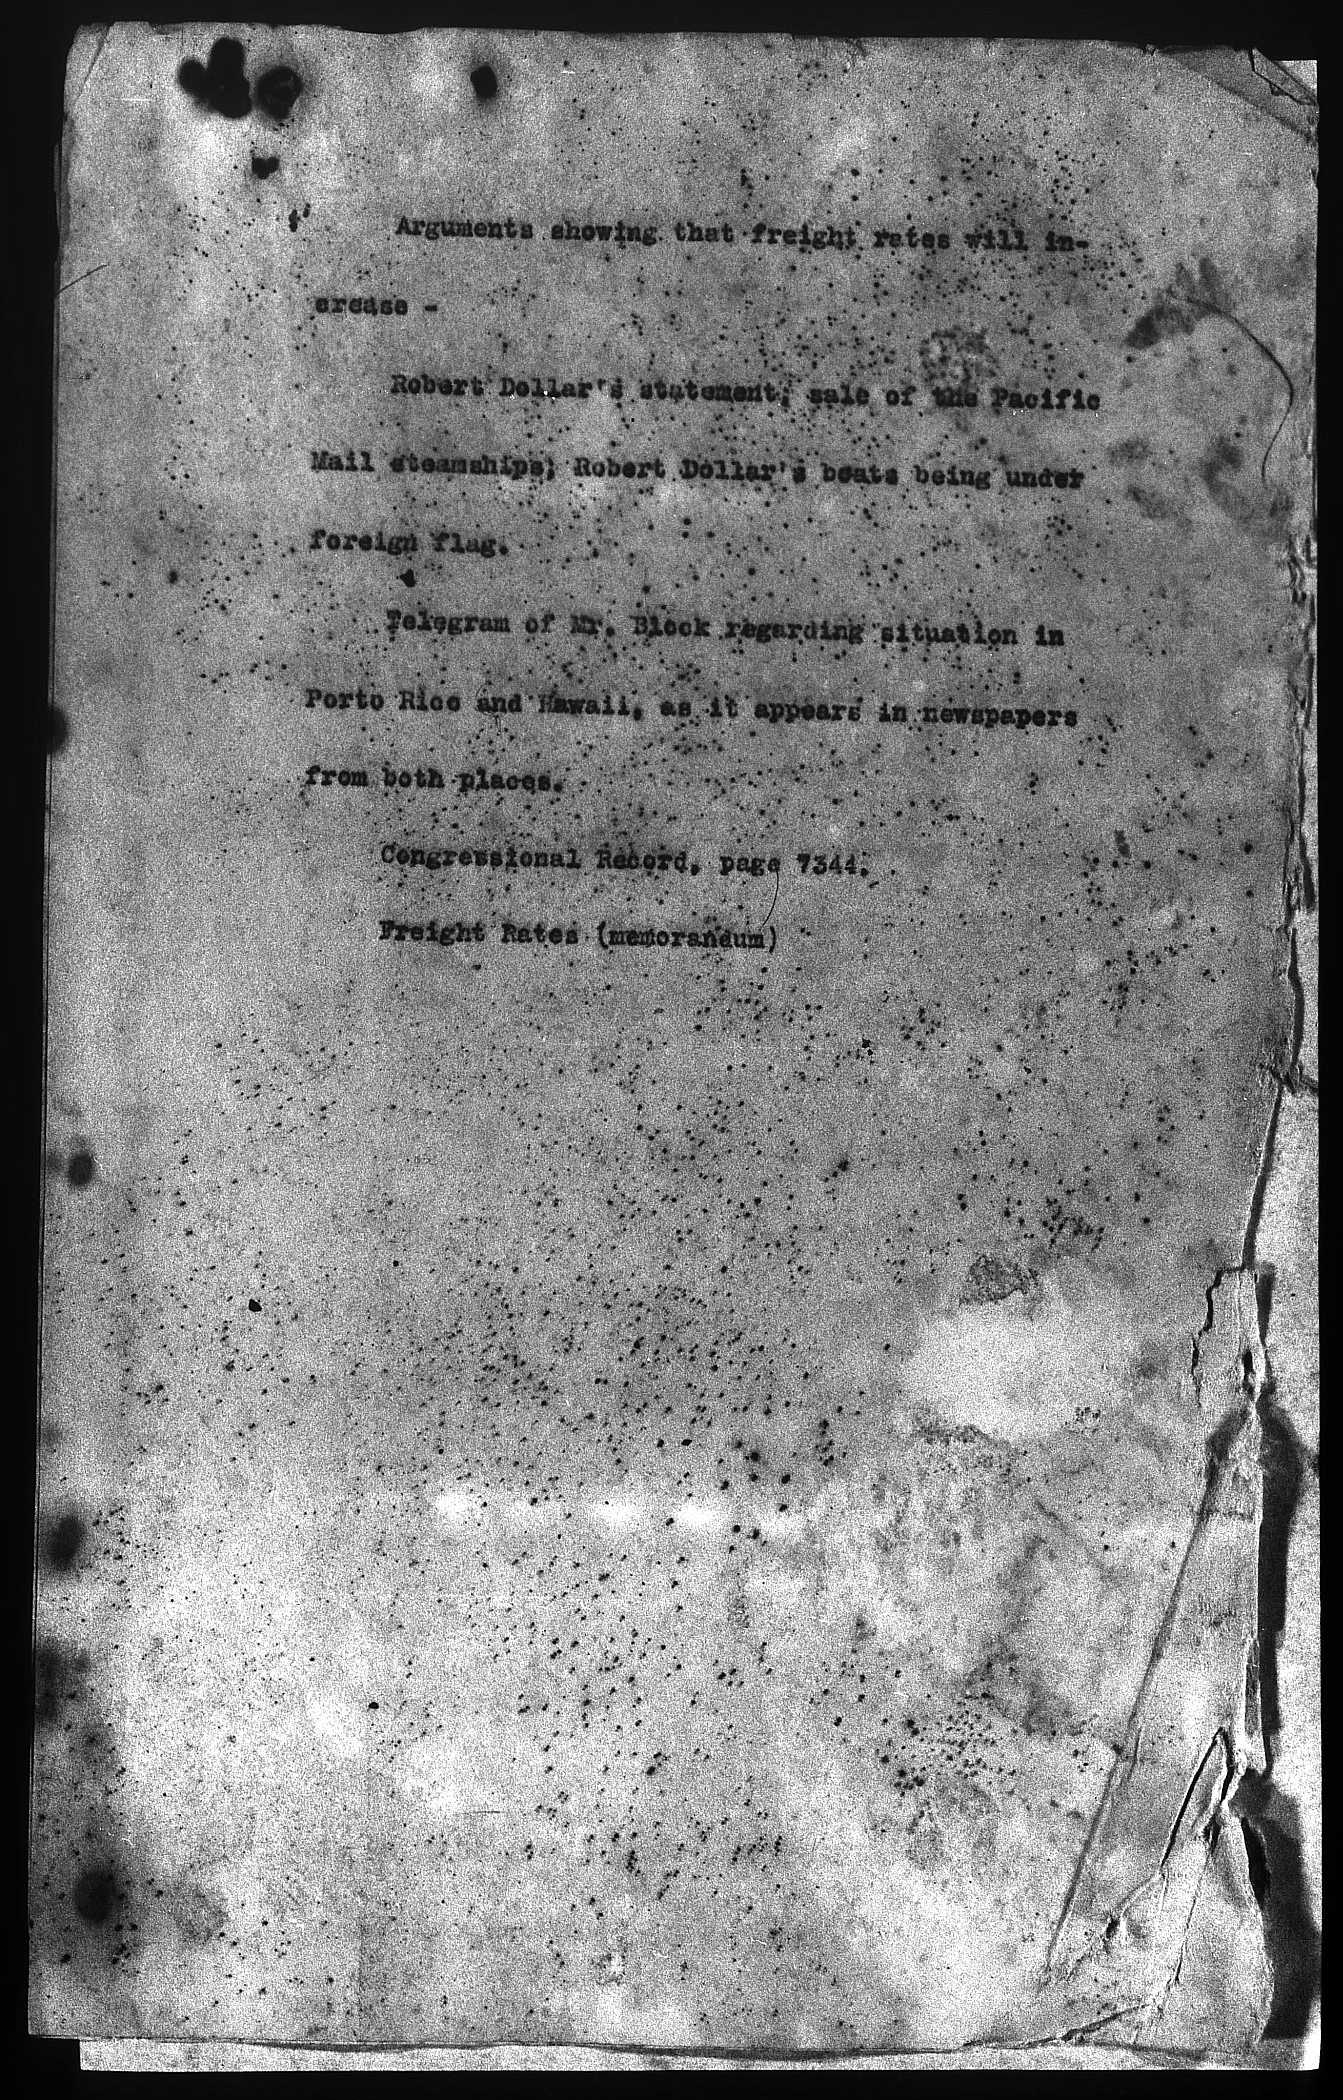 Arguments showing that freight rates will in-
crease -
Robert Dollar's statement; sale of the Pacific
Mail steamships; Robert Dollar's boats being under
foreign flag.
Telegram of Mr. Block regarding situation in
Porto Rico and Hawaii, as it appears in newspapers
from both places.
Congressional Record, page 7344.
Freight Rates (memorandum)